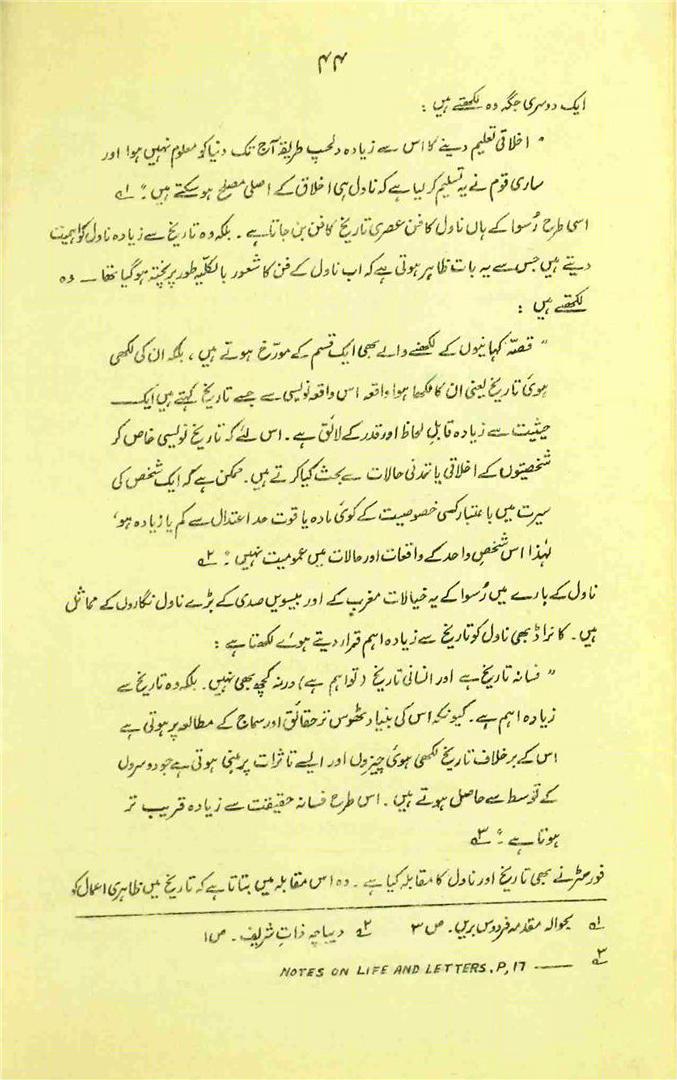 ۴۴
ایک دوسری جگہ وہ لکھتے ہیں :
" اخلاقی تعلیم دینے کا اس سے زیادہ دلچسپ طریقہ آج تک دنیا کو معلوم نہیں ہوا اور
ساری قوم نے یہ تسلیم کر لیا ہے کہ ناول ہی اخلاق کے اصلی مصلح ہو سکتے ہیں ۔" ۱ے
اسی طرح رُسوا کے ہاں ناول کا فن عصری تاریخ کا فن بن جاتا ہے ۔ بلکہ وہ تاریخ سے زیادہ ناول کو اہمیت
دیتے ہیں جس سے یہ بات ظاہر ہوتی ہے کہ اب ناول کے فن کا شعور بالکلیہ طور پر پختہ ہو گیا تھا ۔ وہ
لکھتے ہیں :
" قصّہ کہانیوں کے لکھنے والے بھی ایک قسم کے مورّخ ہوتے ہیں ، بلکہ ان کی لکھی
ہوئی تاریخ یعنی ان کا لکھا ہوا واقعہ اس واقعہ نویسی سے جسے تاریخ کہتے ہیں ایک
حیثیت سے زیادہ قابلِ لحاظ اور قدر کے لائق ہے ۔ اس لئے کہ تاریخ نویسی خاص کر
شخصیتوں کے اخلاقی یا تمدنی حالات سے بحث کیا کرتے ہیں ۔ ممکن ہے کہ ایک شخص کی
سیرت میں باعتبار کسی خصوصیت کے کوئی مادہ یا قوت حد اعتدال سے کم یا زیادہ ہو ،
لہٰذا اس شخصِ واحد کے واقعات اور حالات میں عمومیت نہیں ۔" ۲ے
ناول کے بارے میں رُسوا کے یہ خیالات مغرب کے اور بیسویں صدی کے بڑے ناول نگاروں کے مماثل
ہیں ۔ کانراڈ بھی ناول کو تاریخ سے زیادہ اہم قرار دیتے ہوئے لکھتا ہے :
" فسانہ تاریخ ہے اور انسانی تاریخ ( تو اہم ہے ) ورنہ کچھ بھی نہیں ۔ بلکہ وہ تاریخ سے
زیادہ اہم ہے ۔ کیونکہ اس کی بنیاد ٹھوس تر حقائق اور سماج کے مطالعہ پر ہوتی ہے
اس کے برخلاف تاریخ لکھی ہوئی چیزوں اور ایسے تاثرات پر مبنی ہوتی ہے جو دوسروں
کے توسط سے حاصل ہوتے ہیں ۔ اس طرح فسانہ حقیقت سے زیادہ قریب تر
ہوتا ہے ۔" ۳ے
فورسٹر نے بھی تاریخ اور ناول کا مقابلہ کیا ہے ۔ وہ اس مقابلہ میں بتاتا ہے کہ تاریخ میں ظاہری اعمال کو
۱ے بحوالہ مقدمہ فردوس بریں ۔ ص ۳ ۲ے دیباچہ ذاتِ شریف ۔ ص ۱
۳ے —— NOTES ON LIFE AND LETTERS. P, 17